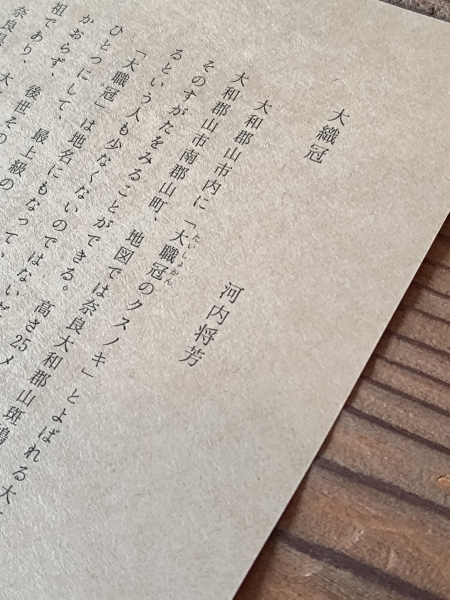 大織冠
河内将芳
大和郡山市内に「大職冠のクスノキ」とよばれる大
たいしょかん
大和郡山市南郡山町、地図では奈良大和郡山斑鳩
そのすがたをみることができる。高さ25メ
るという人も少なくないのではないだ
「大職冠」は地名にもなって、
ひとつにして、最上級の
かおらず、後世
祖であり、その